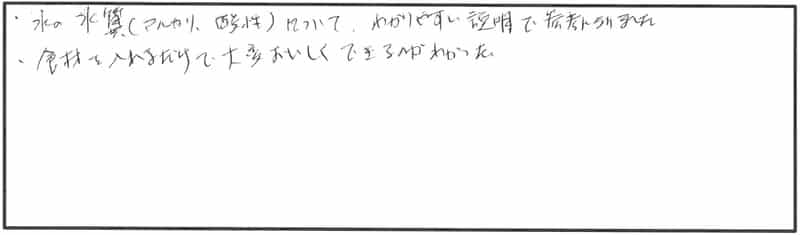 ・水の水質(アルカリ、酸性)について、わかりやすい説明で参考になりました
・食材を入れるだけで大変おいしくできる事がわかった。